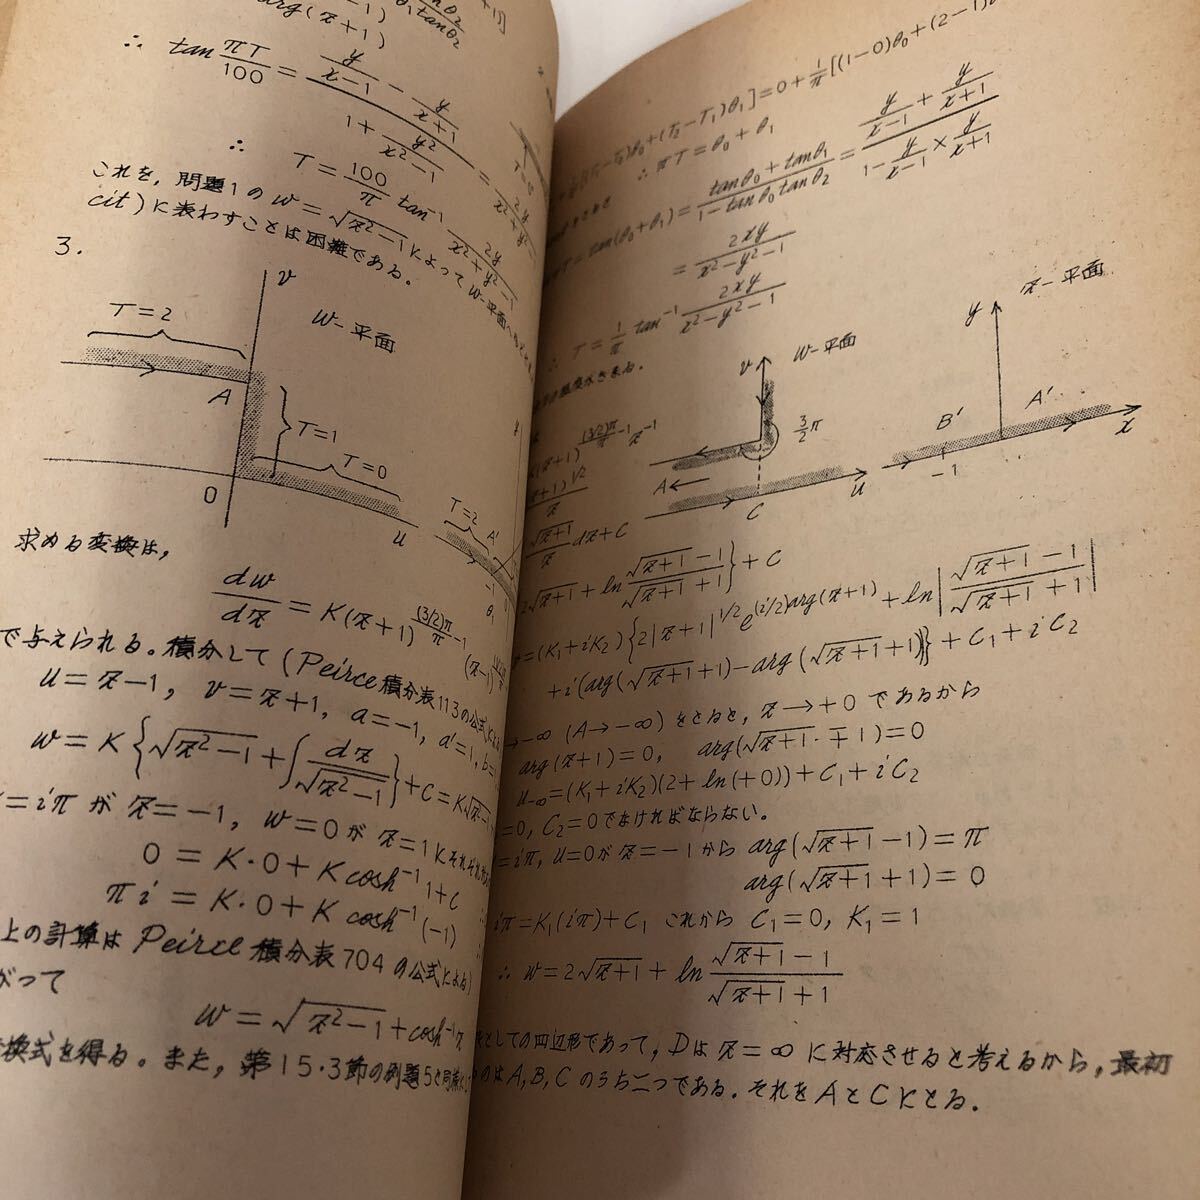 arg(z+1)
∴ tan πT/100 = (y/(x-1) - y/(x+1))/(1 + y²/(x²-1)) = 2y/(x²+y²
∴ T = 100/π tan⁻¹ 2y/(x²+y²-1)
これを, 問題1の w=√(z²-1) によって w-平面へ
cit) に表わすことは困難である.
3.
v
T=2
w-平面
A
T=1
T=0
O
u
T=2
A'
-1
θ₁
求める変換は,
dw/dz = K(z+1)^((3/2)π/π -1) (z-1)
で与えられる. 積分して (Peirce 積分表 113の公式
u=z-1, v=z+1, a=-1, a'=1, b=
w=K{√(z²-1) + ∫dz/√(z²-1)} + C = K√(z²-1)
=iπ が z=-1, w=0 が z=1 に それぞれ
0 = K·0 + K cosh⁻¹ 1 + C
πi = K·0 + K cosh⁻¹ (-1)
上の計算は Peirce 積分表 704 の公式による)
がって
w = √(z²-1) + cosh⁻¹ z
換式を得る. また, 第15·3節の例題5と同様に
θ₀+(T₂-T₁)θ₁] = 0 + 1/π[(1-0)θ₀+(2-1)
∴ πT = θ₀+θ₁
T = tan(θ₀+θ₁) = (tanθ₀+tanθ₁)/(1-tanθ₀tanθ₂) = (y/(x-1) + y/(x+1))/(1 - y/(x-1) × y/(x+1))
= 2xy/(x²-y²-1)
∴ T = 1/π tan⁻¹ 2xy/(x²-y²-1)
v
w-平面
3/2 π
A
C
u
y
z-平面
B'
A'
-1
x
(z+1)^((3/2)π/π -1) z⁻¹
(z+1)^1/2/z
√(z+1)/z dz+C
2√(z+1) + ln (√(z+1) -1)/(√(z+1) +1)} + C
=(K₁+iK₂){2|z+1|^1/2 e^((i/2)arg(z+1)) + ln|(√(z+1) -1)/(√(z+1) +1)|
+i(arg(√(z+1)+1)-arg(√(z+1)+1))} + C₁+iC₂
→-∞ (A→-∞) をとると, z→+0 であるから
arg(z+1)=0, arg(√(z+1)·∓1)=0
u₋∞=(K₁+iK₂)(2+ln(+0))+C₁+iC₂
=0, C₂=0でなければならない.
=iπ, u=0が z=-1 から arg(√(z+1)-1)=π
arg(√(z+1)+1)=0
iπ=K₁(iπ)+C₁ これから C₁=0, K₁=1
∴ w=2√(z+1) + ln (√(z+1)-1)/(√(z+1)+1)
としての四辺形であって, Dは z=∞ に対応させると考えるから, 最初
のはA, B, Cのうち二つである. それをAとCにとる.